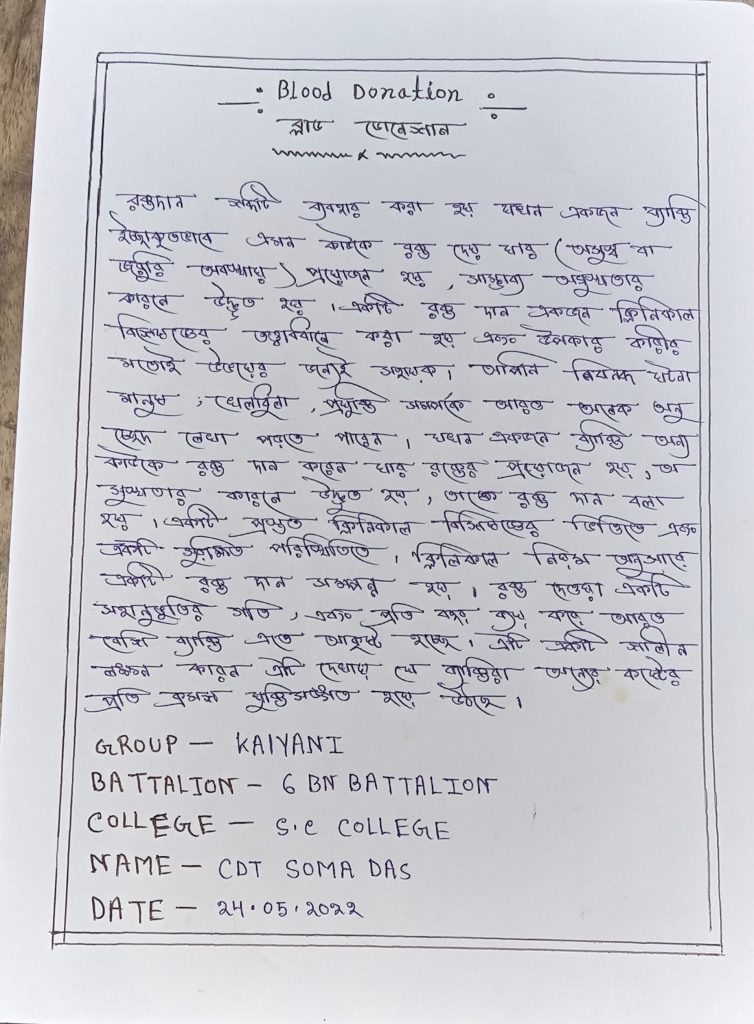 Blood Donation
ব্লাড ডোনেশান
রক্তদান শব্দটি ব্যবহার করা হয় যখন একজন ব্যাক্তি
ইচ্ছাকৃতভাবে এমন কাউকে রক্ত দেয় যার (অসুস্থ বা
জরুরি অবস্থায়) প্রয়োজন হয়, সাম্ভাব্য অসুস্থতার
কারনে উদ্ভুত হয়। একটি রক্ত দান একজন ক্লিনিকাল
বিশেষজ্ঞের তত্ত্বাবধানে করা হয় এবং উপকার কারীর
মতোই উভয়ের জন্যই সহায়ক। আপনি নিবন্ধ ঘটনা
মানুষ, খেলাধুলা, প্রযুক্তি সম্পর্কে আরও অনেক অনু
চ্ছেদ লেখা পরতে পারেন। যখন একজন ব্যাক্তি অন্য
কাউকে রক্ত দান করেন যার রক্তের প্রয়োজন হয়, অ
সুস্থতার কারনে উদ্ভুত হয়, তাকে রক্ত দান বলা
হয়। একটি প্রস্তুত ক্লিনিকাল বিশেষজ্ঞের ভিত্তিতে এবং
একটি সুরক্ষিত পরিস্থিতিতে, ক্লিনিকাল নিয়ম অনুসারে
একটি রক্ত দান সম্পন্ন হয়। রক্ত দেওয়া একটি
সহানুভুতির গতি, এবং প্রতি বছর ব্যয় করে আরও
বেশি ব্যাক্তি এতে আকৃষ্ট হচ্ছে। এটি একটি শালীন
লক্ষন কারন এটি দেখায় যে ব্যাক্তিরা অন্যের কষ্টের
প্রতি ক্রমশ যুক্তিসঙ্গত হয়ে উঠছে।
GROUP — KAlYANI
BATTALION — 6 BN BATTALION
COLLEGE — S.C COLLEGE
NAME — CDT SOMA DAS
DATE — 24.05.2022